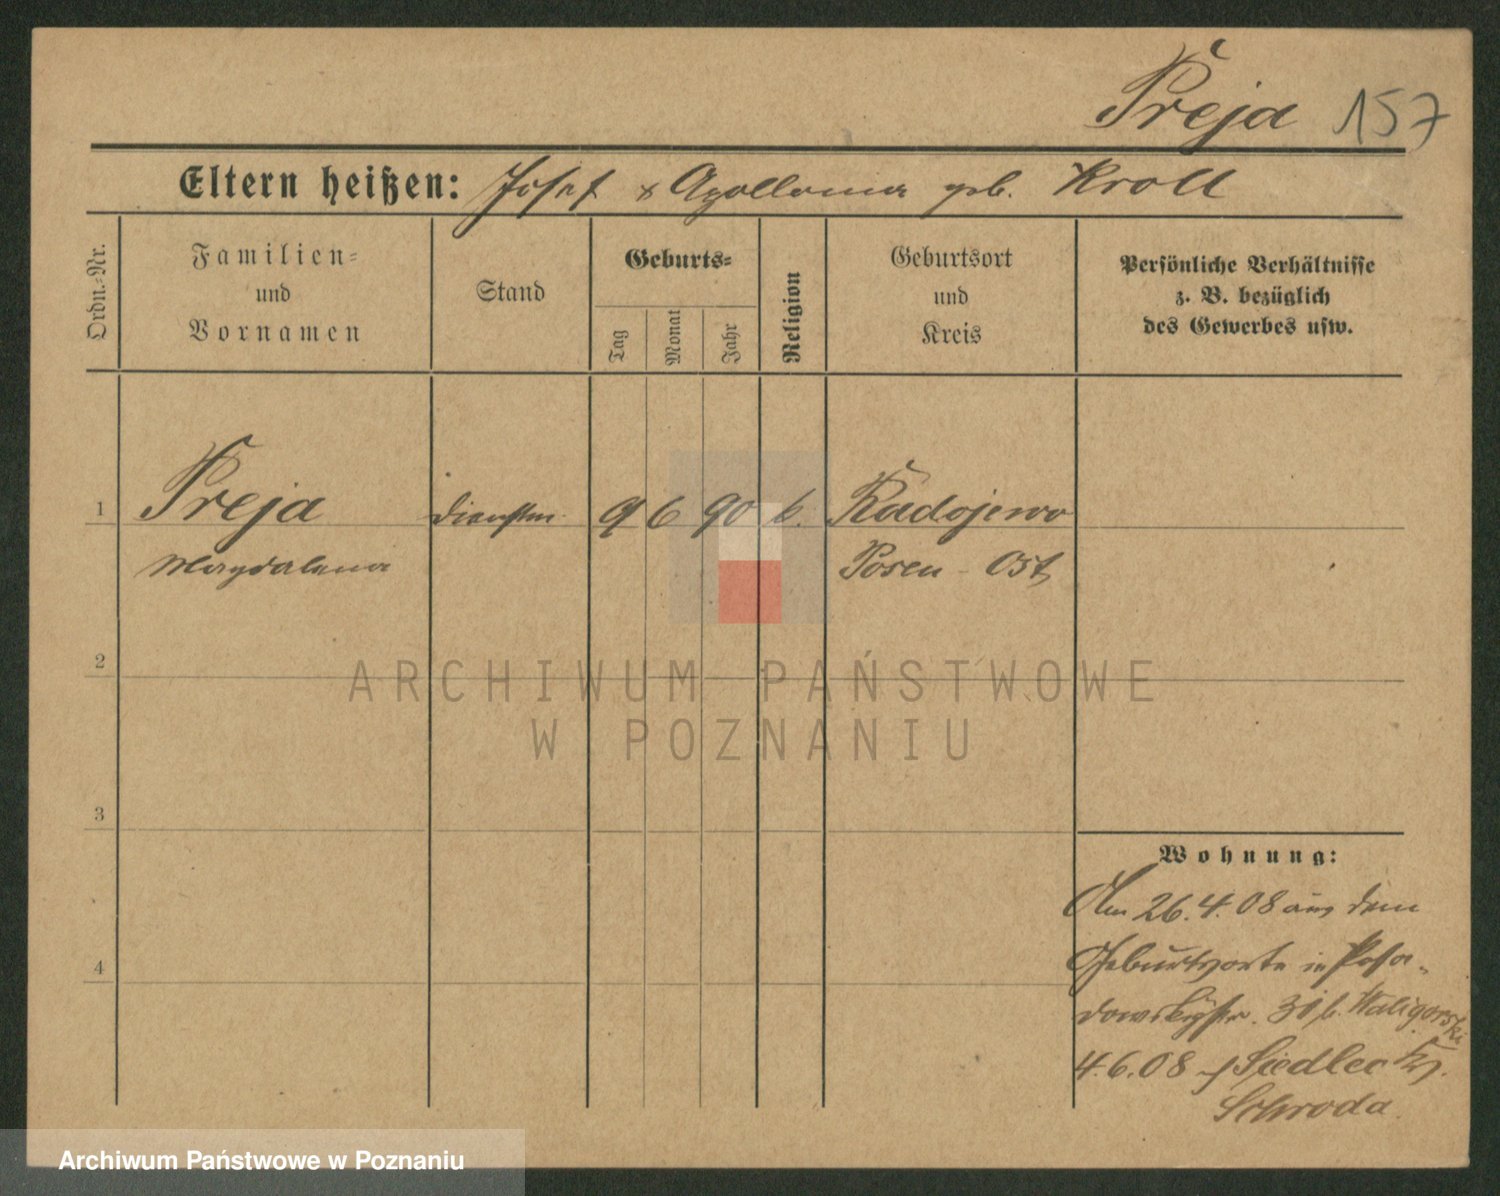 Preja 157
Eltern heißen: Josef & Apollonia geb. Kroll
Ordn.-Nr.
Familien-
und
Vornamen
Stand
Geburts-
Tag
Monat
Jahr
Religion
Geburtsort
und
Kreis
Persönliche Verhältnisse
z. B. bezüglich
des Gewerbes usw.
1 Preja Dienstm. 9 6 90 k. Radojewo
Magdalena Posen - Ost
2
ARCHIWUM PAŃSTWOWE
W POZNANIU
3
4
Wohnung:
Am 26.4.08 aus dem
Geburtsorte in Posa-
dowskystr. 31 b. Waligorski
4.6.08 Siedlec Kr.
Schroda.
Archiwum Państwowe w Poznaniu